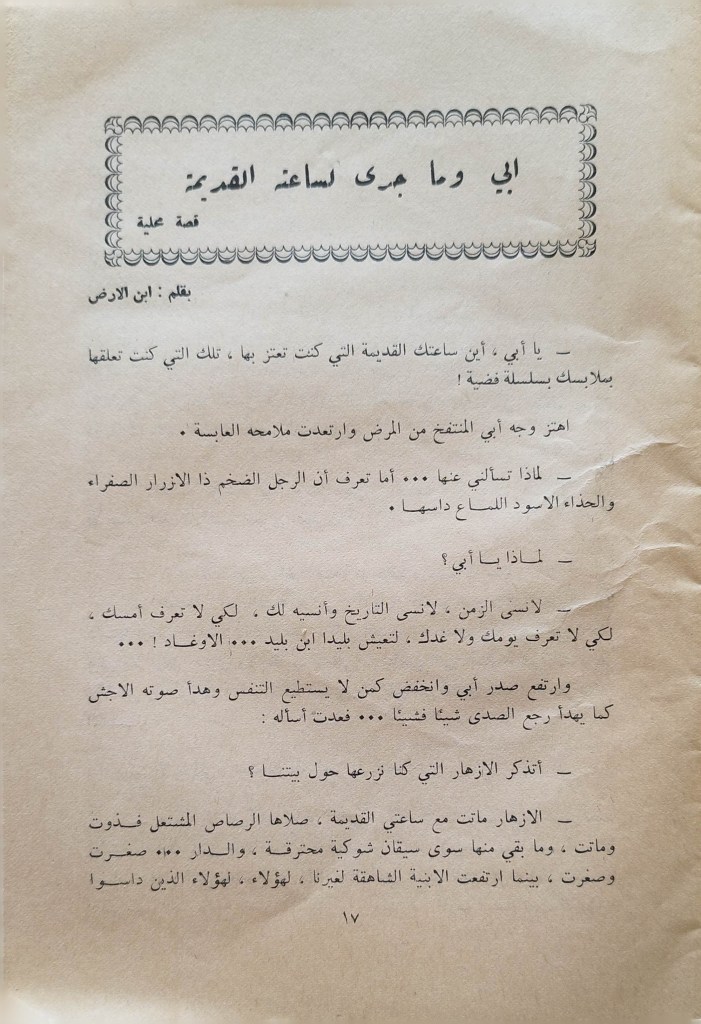 ابي وما جرى لساعته القديمة
قصة محلية
بقلم : ابن الارض
— يا أبي ، أين ساعتك القديمة التي كنت تعتز بها ، تلك التي كنت تعلقها
بملابسك بسلسلة فضية !
اهتز وجه أبي المنتفخ من المرض وارتعدت ملامحه العابسة •
— لماذا تسألني عنها ••• أما تعرف أن الرجل الضخم ذا الازرار الصفراء
والحذاء الاسود اللماع داسها •
— لماذا يا أبي ؟
— لانسى الزمن ، لانسى التاريخ وأنسيه لك ، لكي لا تعرف أمسك ،
لكي لا تعرف يومك ولا غدك ، لتعيش بليدا ابن بليد ••• الاوغاد ! •••
وارتفع صدر أبي وانخفض كمن لا يستطيع التنفس وهدأ صوته الاجش
كما يهدأ رجع الصدى شيئا فشيئا ••• فعدت أسأله :
— أتذكر الازهار التي كنا نزرعها حول بيتنا ؟
— الازهار ماتت مع ساعتي القديمة ، صلاها الرصاص المشتعل فذوت
وماتت ، وما بقي منها سوى سيقان شوكية محترقة ، والدار ••• صغرت
وصغرت ، بينما ارتفعت الابنية الشاهقة لغيرنا ، لهؤلاء ، لهؤلاء الذين داسوا
١٧